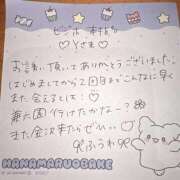 ピンポン本指名
♡Yさま♡
お誘い頂いてありがとうございました
はじめましてから2回目までこんなに早く
また会えるとは：
兼六園行けたかな～？
また金沢来たらぜひ…♡
♡ふうわ♡
HANAMARUOBAKE